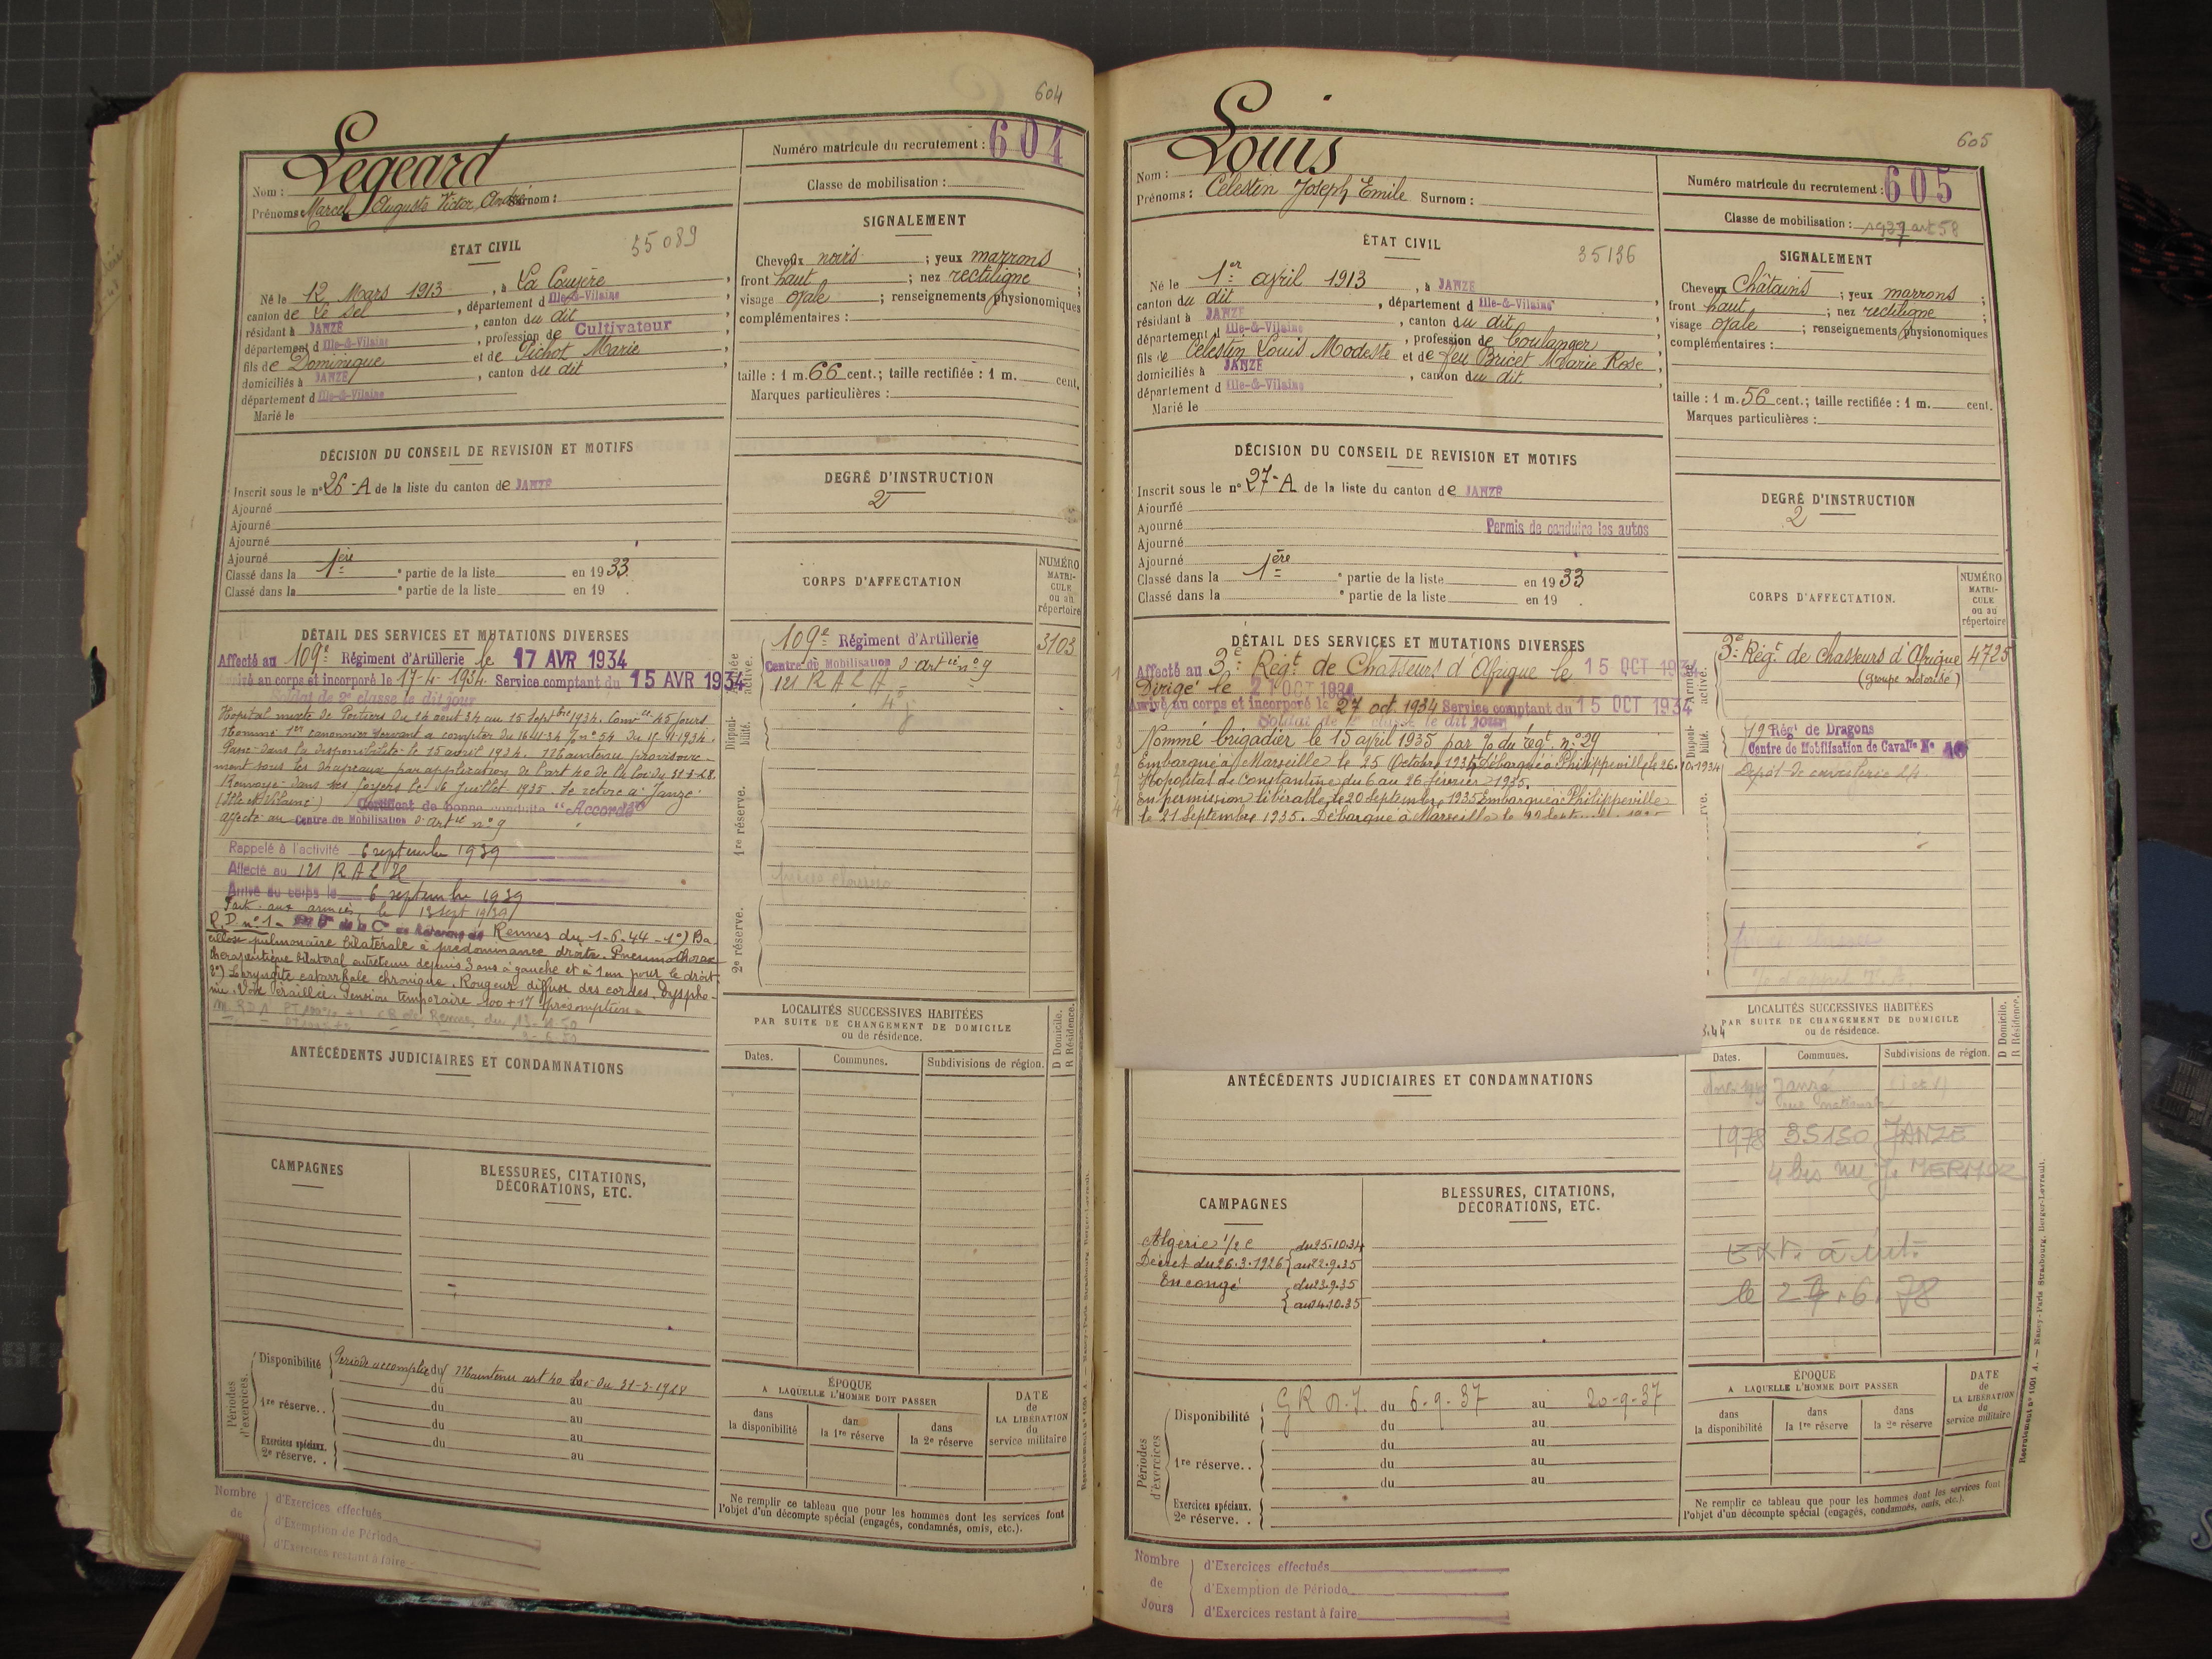 604
Legeard
Nom :
Prénoms : Marcel Auguste Victor André Surnom :
Numéro matricule du recrutement : 604
Classe de mobilisation :
ÉTAT CIVIL
35089
Né le 12 Mars 1913, à La Couyère,
canton de Le Sel, département d Ille-&-Vilaine,
résidant à JANZÉ, canton du dit,
département d Ille-&-Vilaine, profession de Cultivateur,
fils de Dominique et de Pichot Marie,
domiciliés à JANZÉ, canton du dit,
département d Ille-&-Vilaine
Marié le
SIGNALEMENT
Cheveux noirs ; yeux marrons ;
front haut ; nez rectiligne ;
visage ovale ; renseignements physionomiques
complémentaires :
taille : 1 m. 66 cent.; taille rectifiée : 1 m. cent.
Marques particulières :
DÉCISION DU CONSEIL DE REVISION ET MOTIFS
Inscrit sous le n° 26-A de la liste du canton de JANZÉ
Ajourné
Ajourné
Ajourné
Ajourné
Classé dans la 1ère partie de la liste en 1933.
Classé dans la e partie de la liste en 19 .
DEGRÉ D'INSTRUCTION
2
DÉTAIL DES SERVICES ET MUTATIONS DIVERSES
Affecté au 109e Régiment d'Artillerie le 17 AVR 1934
Arrivé au corps et incorporé le 17-4-1934. Service comptant du 15 AVR 1934
Soldat de 2e classe le dit jour
Hopital mixte de Poitiers du 14 aout 34 au 15 Septbre 1934. Convce 45 jours
Nommé 1er canonnier servant à compter du 16-11-34 % n° 54 du 15-11-1934.
Passé dans la disponibilité le 15 avril 1934. Maintenu provisoire-
ment sous les drapeaux par application de l'art 40 de la loi du 31-3-28.
Renvoyé dans ses foyers le 16 Juillet 1935. Se retire à Janzé
(Ille et Vilaine) Certificat de bonne conduite "Accordé"
affecté au Centre de Mobilisation d'artie n° 9
Rappelé à l'activité 6 septembre 1939
Affecté au 121 RALH
Arrivé au corps le 6 septembre 1939
Part. aux armées le 13 sept 1939
P.D. n° 1 - de la Cn de Réforme de Rennes du 1-6-44 - 1°) Ba-
cillose pulmonaire bilatérale à prédominance droite. Pneumothorax
thérapeutique bilatéral entretenu depuis 3 ans à gauche et à 1 an pour le droit
2°) Laryngite catarrhale chronique. Rougeur diffuse des cordes. Dyspho-
nie. Voix éraillée. Pension temporaire 100 + 17 présomption
CORPS D'AFFECTATION
NUMÉRO MATRI-CULE ou au répertoire
Armée active.
109e Régiment d'Artillerie 3103
Centre de Mobilisation d'artie n° 9
121 RALH
Disponibilité.
1re réserve.
2e réserve.
LOCALITÉS SUCCESSIVES HABITÉES
PAR SUITE DE CHANGEMENT DE DOMICILE
ou de résidence.
Dates. Communes. Subdivisions de région. D Domicile. R Résidence.
ANTÉCÉDENTS JUDICIAIRES ET CONDAMNATIONS
CAMPAGNES
BLESSURES, CITATIONS,
DÉCORATIONS, ETC.
Périodes d'exercices.
Disponibilité Période accomplie du Maintenu art 40 Loi du 31-3-1928
du au
1re réserve. . du au
du au
Exercices spéciaux. du au
2e réserve. .
ÉPOQUE
A LAQUELLE L'HOMME DOIT PASSER
dans la disponibilité dans la 1re réserve dans la 2e réserve
DATE de LA LIBÉRATION du service militaire
Ne remplir ce tableau que pour les hommes dont les services font
l'objet d'un décompte spécial (engagés, condamnés, omis, etc.).
Nombre de Jours
d'Exercices effectués
d'Exemption de Période
d'Exercices restant à faire
605
Louis
Nom :
Prénoms : Célestin Joseph Emile Surnom :
Numéro matricule du recrutement : 605
Classe de mobilisation : 1937 art 58
ÉTAT CIVIL
35136
Né le 1er avril 1913, à JANZÉ
canton du dit, département d Ille-&-Vilaine,
résidant à JANZÉ, canton du dit,
département d Ille-&-Vilaine, profession de boulanger,
fils de Célestin Louis Modeste et de feu Bucet Marie Rose,
domiciliés à JANZÉ, canton du dit,
département d Ille-&-Vilaine
Marié le
SIGNALEMENT
Cheveux Châtains ; yeux marrons ;
front haut ; nez rectiligne ;
visage ovale ; renseignements physionomiques
complémentaires :
taille : 1 m. 56 cent.; taille rectifiée : 1 m. cent.
Marques particulières :
DÉCISION DU CONSEIL DE REVISION ET MOTIFS
Inscrit sous le n° 27-A de la liste du canton de JANZÉ
Ajourné
Ajourné Permis de conduire les autos
Ajourné
Ajourné
Classé dans la 1ère partie de la liste en 1933
Classé dans la e partie de la liste en 19 .
DEGRÉ D'INSTRUCTION
2
DÉTAIL DES SERVICES ET MUTATIONS DIVERSES
Affecté au 3e Regt de Chasseurs d'Afrique le 15 OCT 1934
Dirigé le 21 OCT 1934
Arrivé au corps et incorporé le 27 oct. 1934 Service comptant du 15 OCT 1934
Soldat de 2e classe le dit jour
Nommé brigadier le 15 avril 1935 par % du régt n° 29
Embarqué à Marseille le 25 Octobre 1934 Débarqué à Philippeville le 26.10.1934
Hopital de Constantine du 6 au 26 février 1935.
En permission libérable le 20 Septembre 1935 Embarqué à Philippeville
le 21 Septembre 1935. Débarqué à Marseille le 22
CORPS D'AFFECTATION.
NUMÉRO MATRI-CULE ou au répertoire
Armée active.
3e Régt de Chasseurs d'Afrique 4725
(Groupe motorisé)
Disponibilité.
19 Régt de Dragons
Centre de Mobilisation de Cavalie N° 10
Dépôt de cavalerie
LOCALITÉS SUCCESSIVES HABITÉES
PAR SUITE DE CHANGEMENT DE DOMICILE
ou de résidence.
Dates. Communes. Subdivisions de région. D Domicile. R Résidence.
Janzé
rue Nationale
1978 35150 JANZE
4 bis rue J. MERMOZ
le 27.6.78
ANTÉCÉDENTS JUDICIAIRES ET CONDAMNATIONS
CAMPAGNES
Algérie 1/2 C du 25.10.34
Décret du 26.3.1926 au 22.9.35
En congé du 23.9.35
au 14.10.35
BLESSURES, CITATIONS,
DÉCORATIONS, ETC.
Périodes d'exercices
Disponibilité du 6-9-37 au 20-9-37
du au
1re réserve. . du au
du au
du au
Exercices spéciaux.
2e réserve. .
ÉPOQUE
A LAQUELLE L'HOMME DOIT PASSER
dans la disponibilité dans la 1re réserve dans la 2e réserve
DATE de LA LIBÉRATION du service militaire
Ne remplir ce tableau que pour les hommes dont les services font
l'objet d'un décompte spécial (engagés, condamnés, omis, etc.).
Recrutement n° 1001 A. — Nancy-Paris-Strasbourg, Berger-Levrault.
Nombre de Jours
d'Exercices effectués
d'Exemption de Période
d'Exercices restant à faire